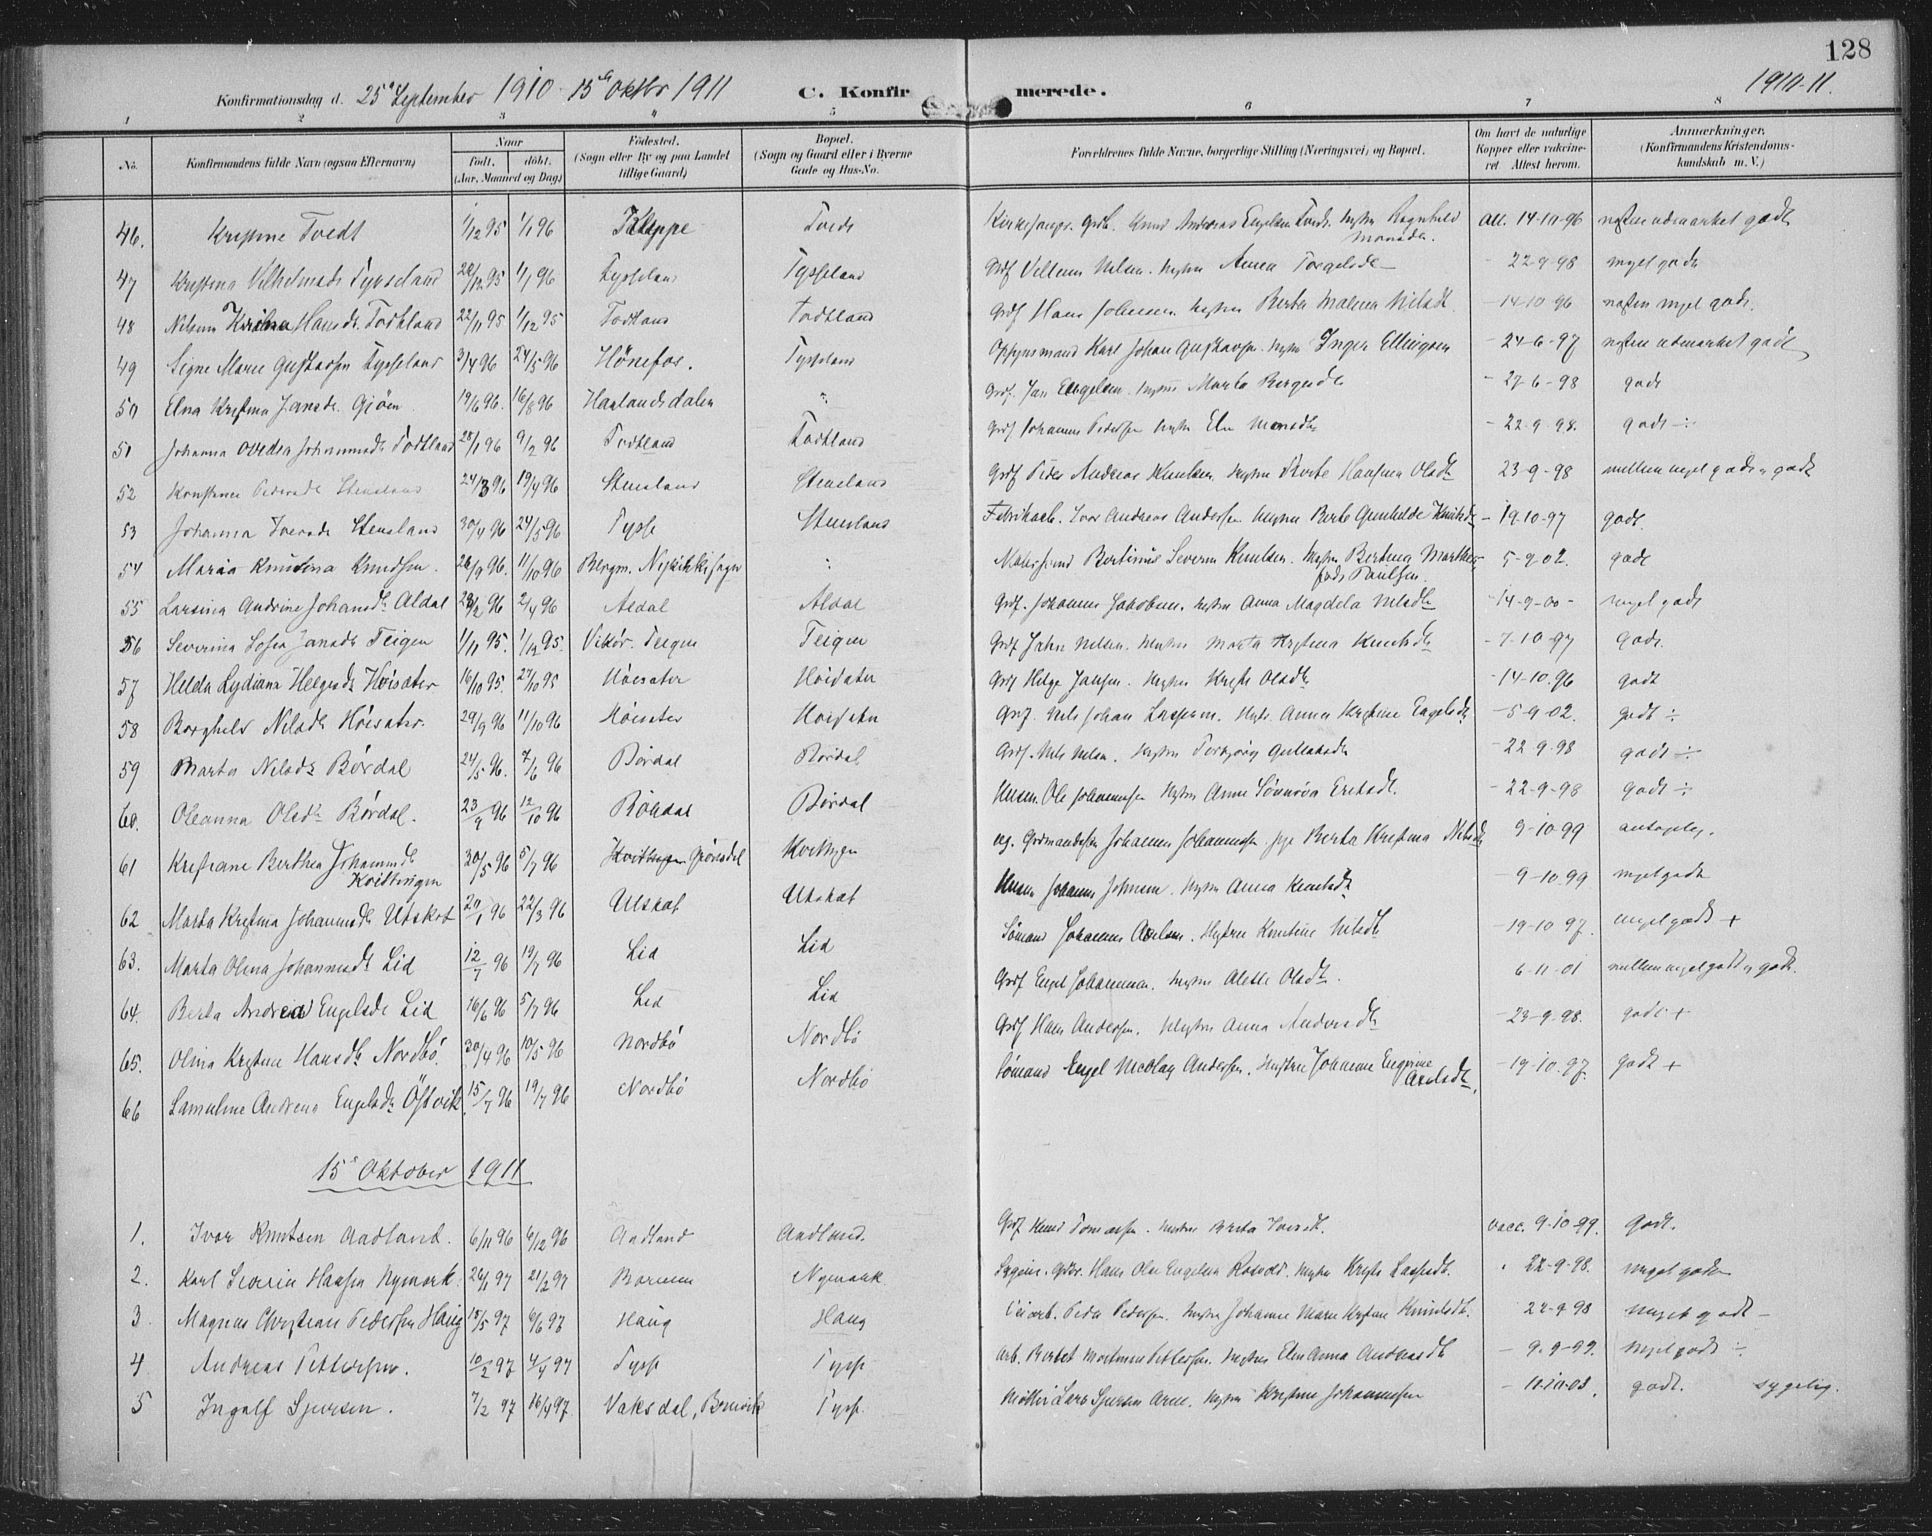 128
Konfirmationsdag d. 25de September 1910. 15de Oktbr 1911 C. Konfirmerede. 1910-11.
1 2 3 4 5 6 7 8
No. Konfirmandens fulde Navn (ogsaa Efternavn) Naar født. døbt. (Aar, Maaned og Dag) Fødested. (Sogn eller By og paa Landet tillige Gaard) Bopæl. (Sogn og Gaard eller i Byerne Gade og Hus-No. Forældrenes fulde Navne, borgerlige Stilling (Næringsvei) og Bopæl. Om havt de naturlige Kopper eller vakcineret Attest herom. Anmærkninger. (Konfirmandens Kristendomskundskab m. V.)
46. Kristine Tvedt 1/12 95 1/1 96 Klyppe Tvedt Knud Andreas Engelsen Tvedt. Hustru Ragnhild Monsdtr. att. 14-10-96 næsten udmærket godt
47 Kristina Vilhelmsdtr Tysseland 28/12 95 1/1 96 Tysseland Tysseland Grdf Villum Nilsen. Hustru Anna Torgelsdtr - 22-9-98 meget godt
48 Hansdtr. Todtland 22/11 95 1/12 95 Todtland Todtland Grdf Hans Johannesen Hustru Berta Malena Nilsdtr -14-10-96 næsten meget godt.
49 Signe Marie Gustavsen Tysseland 3/4 96 24/5 96 Hønefos. Tysseland Oppsynsmand Karl Johan Gustavsen. Hustru Inger Ellingsen -24-6-97 næsten udmærket godt
50 Elna Kristina Jansdtr. Gjøen 19/6 96. 16/8 96 Haalandsdalen " Grdf. Jan Engelsen. Hustru Marta Bergesdtr - 27-6-98 godt
51 Johanna Ovedia Johannesdtr Todtland 28/1 96 9/2 96 Todtland Todtland Grdf Johannes Pedersen Hustru Eli Monsdtr - 22-9-98. godt ÷
52 Kristina Pedersdtr Stensland 24/3 96 19/4 96 Stensland Stensland Grdf Peder Andreas Knutsen. Hustru Dorte Hansina Olsdtr 23-9-98 mellem meget godt og godt
53 Johanna Iversdtr Stensland 30/4 96 24/5 96 Tysse Stensland Fabrikarb. Ivar Andreas Andersen Hustru Berte Gunhilde Knutsdtr - 19-10-97 godt.
54 Maria Knutina Knudsen. 26/9 96. 11/10 96 Bergen. Nykirkesogn " Malersvend Bertinius Severin Knutsen. Hustru Bertina Marthea født Paulsen. 5-9 02. godt
55 Larsina Andrine Johansdtr Aldal 23/2 96 2/4 96 Aldal Aldal Grdf. Johannes Jakobsen. Hustru Anna Magdela Nilsdtr -14-9-00- meget godt
56 Severina Sofia Jansdtr Teigen 1/11 95. 1/12 95. Vikør. Teigen Teigen Grdf John Nilsen. Hustru Marta Kristina Knutsdtr -7-10-97 godt.
57 Helda Lydiana Helgesdtr Høisæter 16/10 95. 27/10 95 Høisæter Høisæter Grdf Helge Jansen. Hustru Kristi Olsdtr -14-10.96 godt
58 Borghild Nilsdtr Høisæter. 29/9 96 11/10 96 Høisæter Høisæter Grdf. Nils Johan Larsen. Hustr. Anna Kristine Engelsdtr -5-9-02. godt ÷
59 Marta Nilsdtr Børdal 24/5 96. 7/6 96 Børdal Børdal Grdf. Nils Nilsen. Hustru Torbjørg Gullaksdtr -22-9-98 godt ÷
60. Oleanna Olsdtr Børdal. 23/9 96 12/10 96 Børdal Børdal Husm. Ole Johannesen Hustru Anna Synnøva Eriksdtr. -22-9-98 godt ÷
61 Kristiane Berthea Johannesdtr Kvittingen 30/5 96 5/7 96 Kvittingen Grønsdal Kvittingen ug. Grdmandssøn Johannes Johannesen pige Berta Kristina Nilsdtr 9-10-99 antagelig.
62 Marta Kristina Johannesdtr Utskot 20/1 96 22/3 96 Utskot Utskot Husm Johannes Johnsen. Hustru Anna Knutsdtr -9-10.99 meget godt
63. Marta Olina Johannesdtr Lid 12/7 96 19/7 96 Lid Lid Sømand Johannes Axelsen. Hustru Knutine Nilsdtr -19-10-97. meget godt +
64. Berta Andrea Engelsdtr Lid 16/6 96 5/7 96 Lid Lid Grdf Engel Johannesen. Hustru Alette Olsdtr. 6-11-01 mellem meget godt og godt.
65. Olina Kristine Hansdtr Nordbø. 30/4 96 10/5 96 Nordbø Nordbø Grdf Hans Andersen. Hustru Anna Andersdtr -23-9-98. godt +
66 Samueline Andrena Engelsdtr Østvik. 15/7 96 19/7 96 Nordbø Nordbø Sømand Engel Nicolay Andersen. Hustru Johanne Engeline Axelsdtr. -19-10.97. godt +
15de Oktober 1911
1. Ivar Knutsen Aadland. 6/11 96 6/12 96 Aadland Aadland. Grdf Knud Tomassen. Hustru Berta Iversdtr. vacc. 9-10-99. Godt.
2. Karl Severin Hansen Nymark. 26/1 97 21/2 97 Nymark Hans Olai Engelsen Hustru Kristi Larsdtr. " 22-9-98. meget godt
3. Magnus Christian Pedersen Haug 15/5 97 6/6 97 Haug Haug Peder Pedersen. Hustru Johanne Marie Kristine Knutsdtr. 22-9-98 meget godt -
4 Andreas Pettersen. 10/2 97 4/4 97 Tysse Tysse arb. Bertel Martinus Pettersen. Hustru Elen Anna Andersdtr - 9-9-99. Meget godt ÷
5 Ingolf Sjursen. 7/2 97 16/4 97 Vaksdal, Bruvik Tysse Møller Lars Sjursen Arne. Hustru Kristine Johannesen - 10-10-03. godt. sygelig.